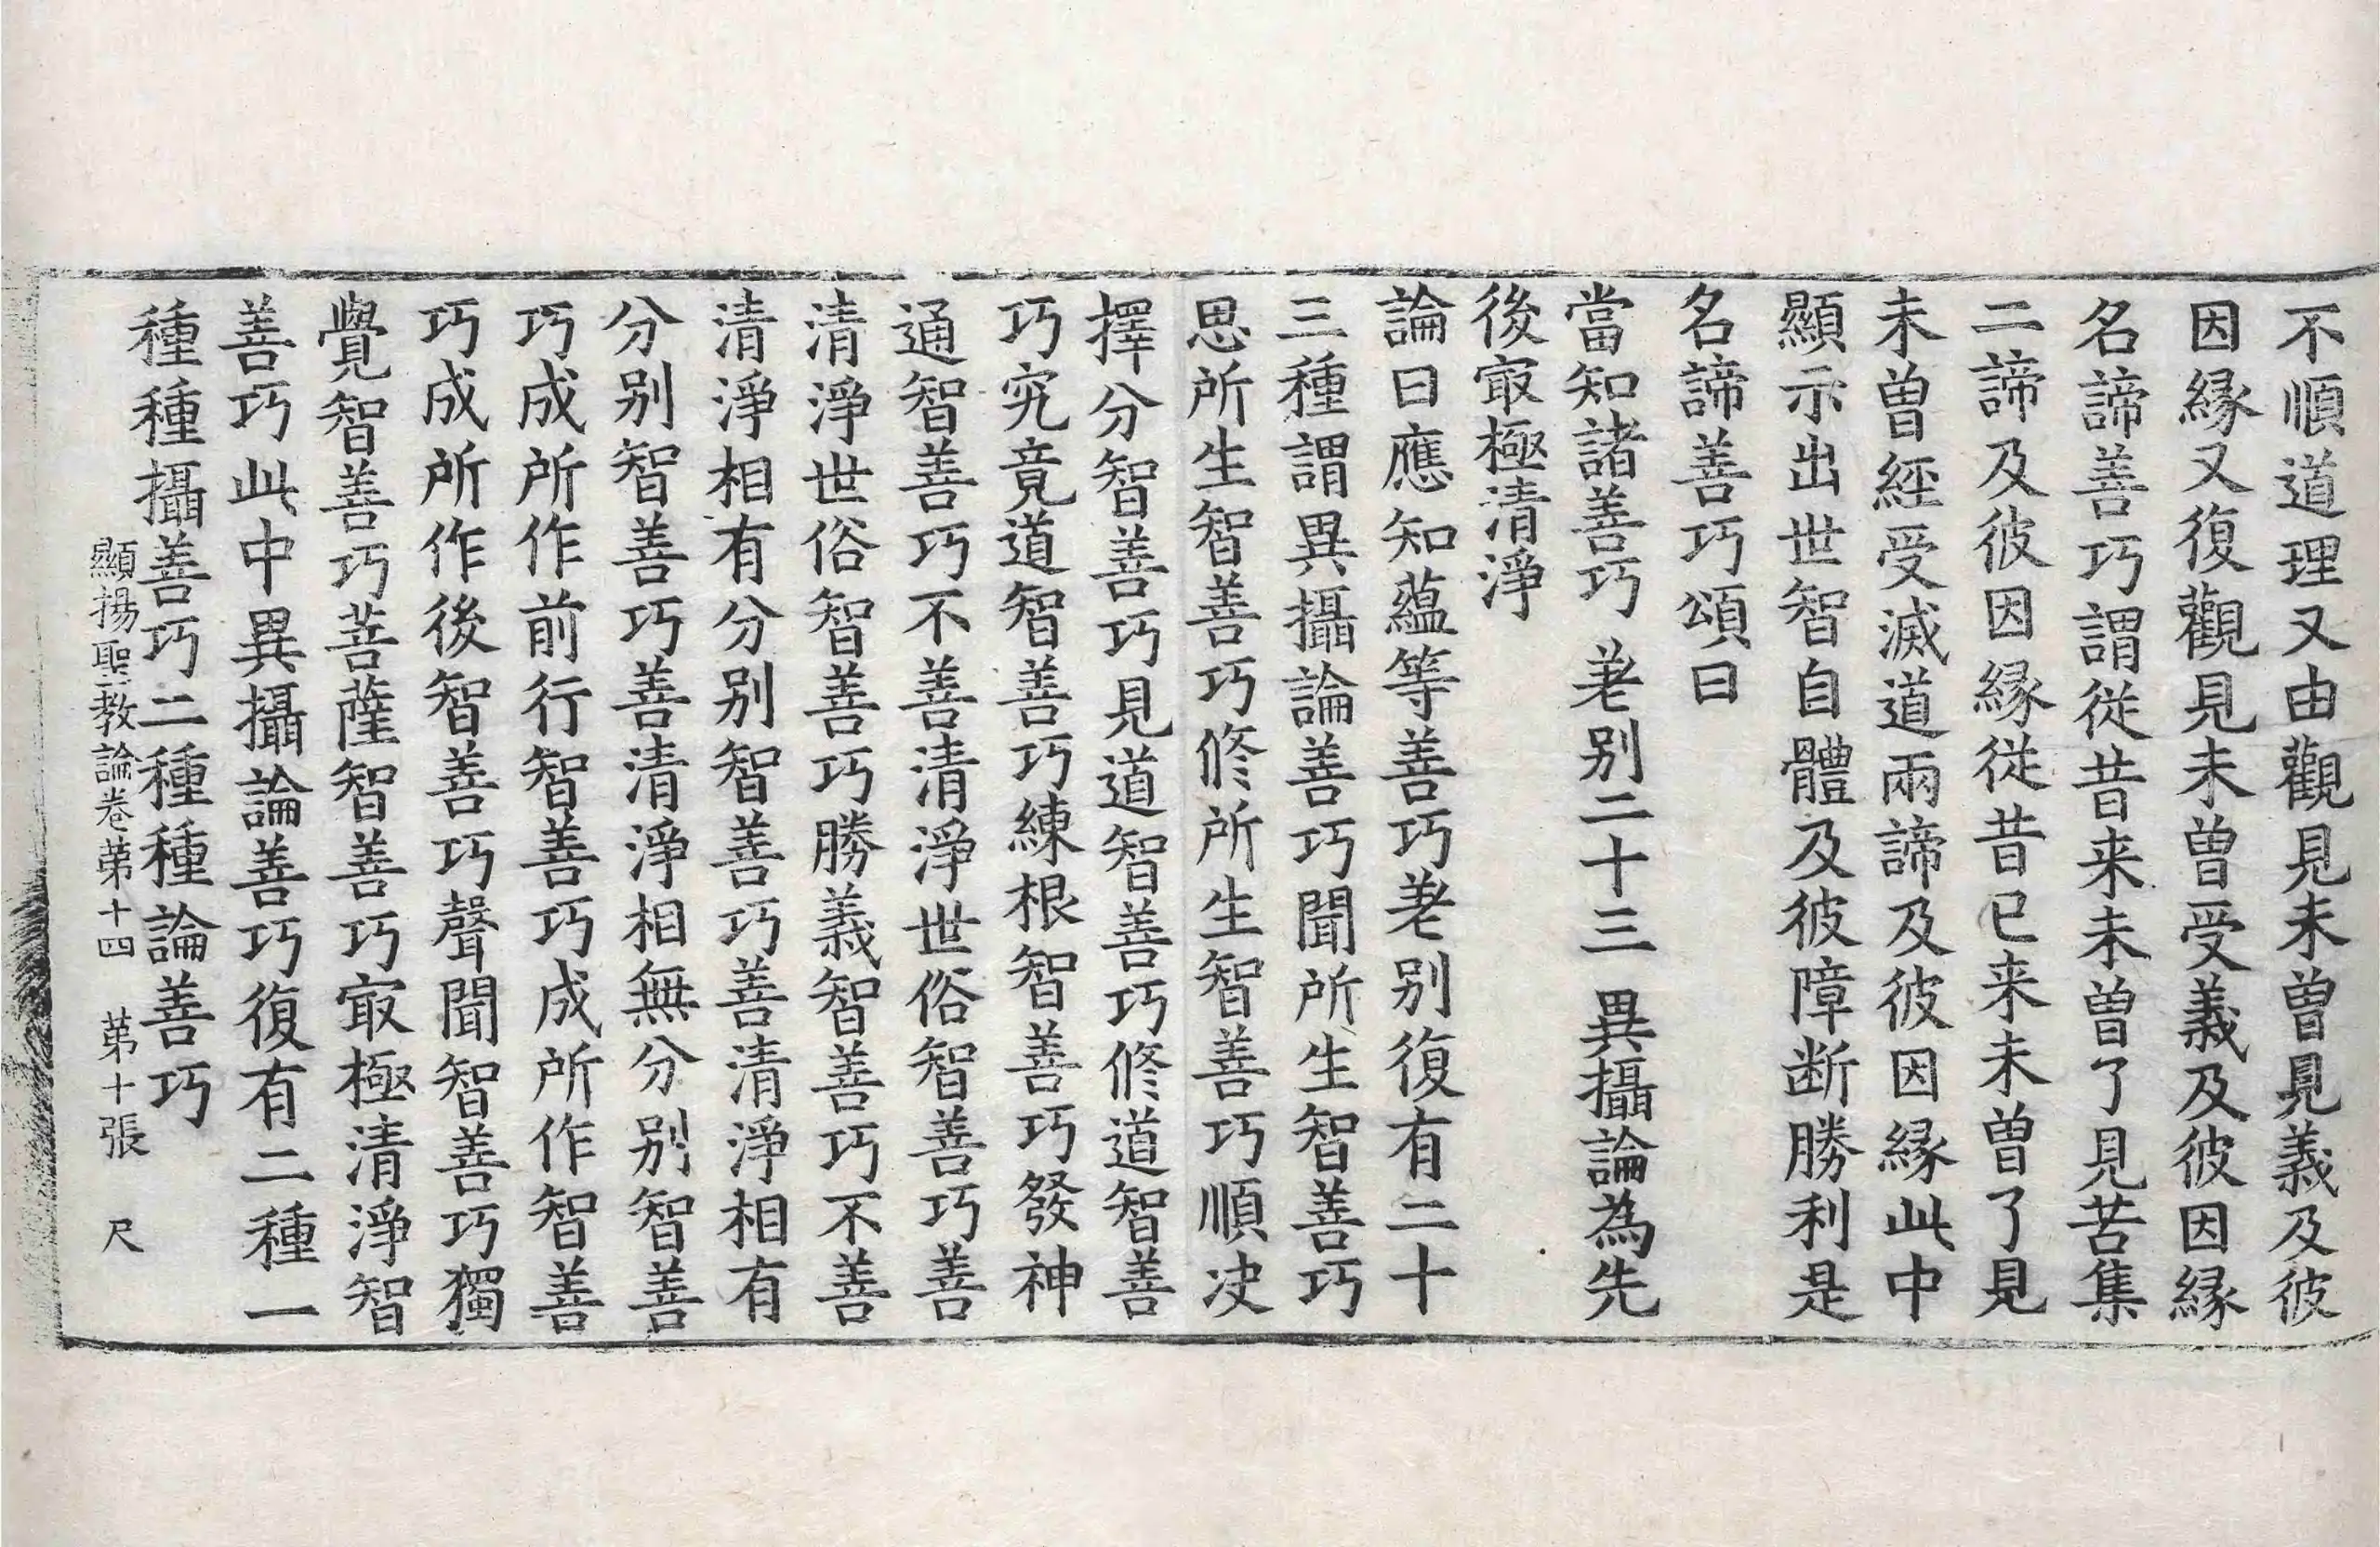 不順道理又由觀見未曽見義及彼
因縁又復觀見未曽受義及彼因縁
名諦善巧謂從昔来未曽了見苦集
二諦及彼因縁從昔已来未曽了見
未曽經受滅道兩諦及彼因縁此中
顯示出世智自體及彼障断勝利是
名諦善巧頌曰
當知諸善巧 差别二十三 異攝論為先
後㝡極清淨
論曰應知蘊等善巧差别復有二十
三種謂異攝論善巧聞所生智善巧
思所生智善巧修所生智善巧順决
擇分智善巧見道智善巧修道智善
巧究竟道智善巧練根智善巧發神
通智善巧不善清淨世俗智善巧善
清淨世俗智善巧勝義智善巧不善
清淨相有分别智善巧善清淨相有
分别智善巧善清淨相無分别智善
巧成所作前行智善巧成所作智善
巧成所作後智善巧聲聞智善巧獨
覺智善巧菩薩智善巧㝡極清淨智
善巧此中異攝論善巧復有二種一
種種攝善巧二種種論善巧
顯揚聖教論卷第十四 第十張 尺